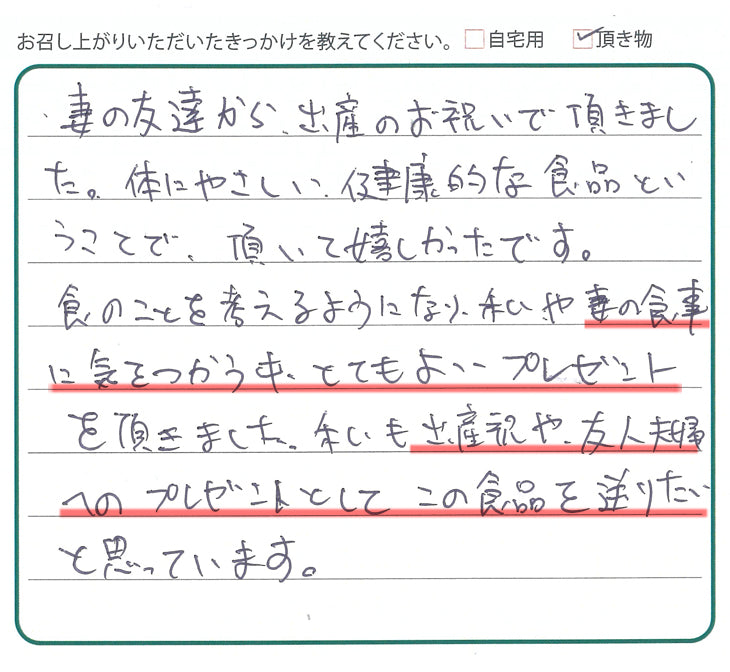 お召し上がりいただいたきっかけを教えてください。 □自宅用 ☑頂き物
・妻の友達から、出産のお祝いで頂きまし
た。体にやさしい、健康的な食品とい
うことで、頂いて嬉しかったです。
食のことを考えるようになり、私や妻の食事
に気をつかう中、とてもよいプレゼント
を頂きました。私も出産祝や、友人夫婦
へのプレゼントとしてこの食品を送りたい
と思っています。